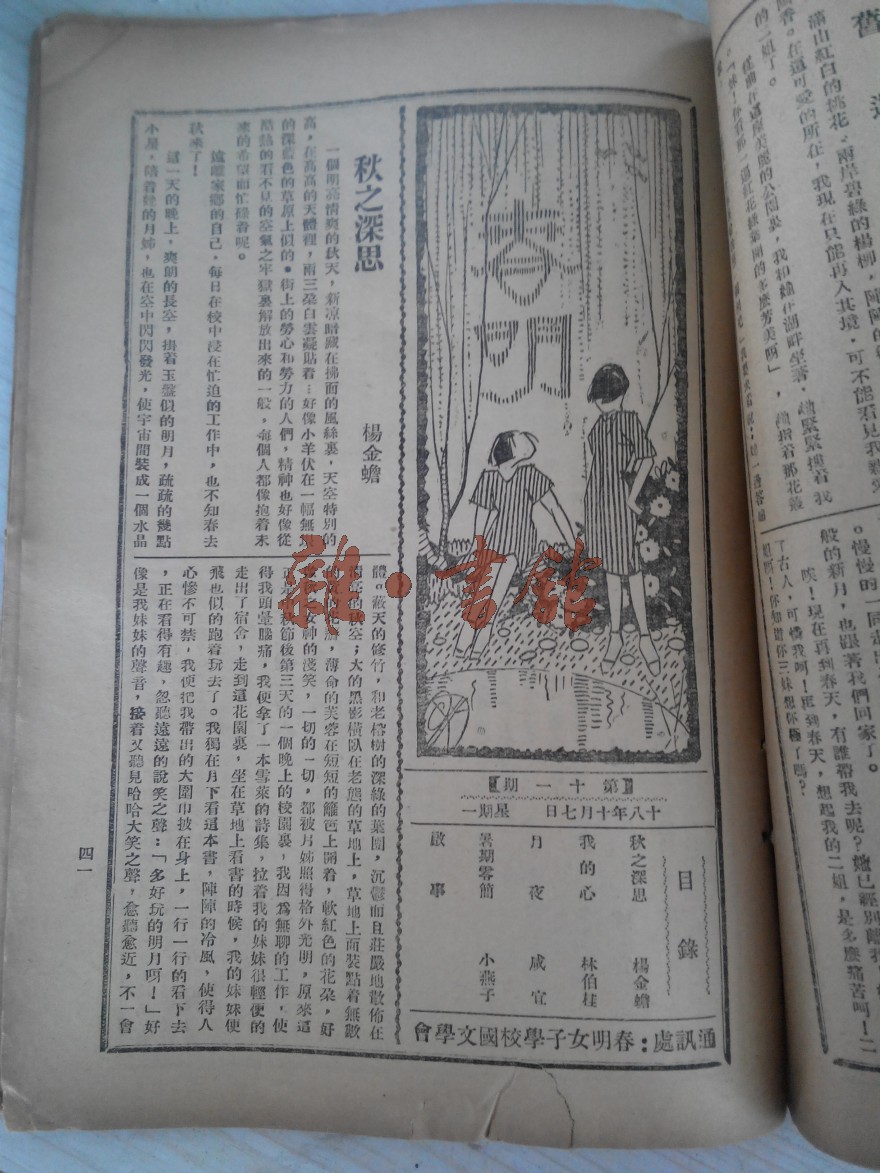 春明
【第十一期】
十八年十月七日 星期一
目錄
秋之深思 楊金蟾
我的心 林伯桂
月夜 咸宜
暑期零簡 小燕子
啟事
通訊處：春明女子學校國文學會
秋之深思
楊金蟾
一個明亮情爽的秋天，新凉暗藏在拂面的風絲裏，天空特別的
高，在高高的天體裡，兩三朶白雲凝貼着…好像小羊伏在一幅無
的深藍色的草原上似的。街上的勞心和勞力的人們，精神也好像從
酷熱的看不見的空氣之牢獄裏解放出來的一般，每個人都像抱着未
來的希望而忙碌着呢。
遠離家鄉的自己，每日在校中浸在忙迫的工作中，也不知春去
秋來了！
這一天的晚上，爽朗的長空，掛着玉盤似的明月，疏疏的幾點
小星，隨着的月姊，也在空中閃閃發光，使宇宙間裝成一個水晶
體。蔽天的修竹，和老榕樹的深綠的葉團，沉鬱而且莊嚴地散佈在
的秋空；大的黑影橫臥在老態的草地上，草地上面裝點着無數
的，薄命的芙蓉在短短的籬笆上開着，軟紅色的花朶，好
女神的淺笑，一切的一切，都被月姊照得格外光明，原來這
正是秋節後第三天的一個晚上的校園裏，我因爲無聊的工作，使
得我頭暈腦痛，我便拿了一本雪萊的詩集，拉着我的妹妹很輕便的
走出了宿舍，走到這花園裏，坐在草地上看書的時候，我的妹妹便
飛也似的跑着玩去了。我獨在月下看這本書，陣陣的冷風，使得人
心慘不可禁，我便把我帶出的大圍巾披在身上，一行一行的看下去
，正在看得有趣，忽聽遠遠的說笑之聲：「多好玩的明月啊！」好
像是我妹妹的聲音，接着又聽見哈哈大笑之聲，愈聽愈近，不一會
四一
雜·書館
滿山紅白的桃花，兩岸碧綠的楊柳，陣陣的
香。在這可愛的所在，我現在只能再入其境，可不能看見我
的二姐了。
般的新月，也跟著我們回家了。
唉！現在再到春天，有誰帶我去呢？她已經別離我，
了古人，可憐我啊！再到春天，想起我的二姐，是多麼痛苦呵！二
姐啊！你知道你三妹想你極了嗎？